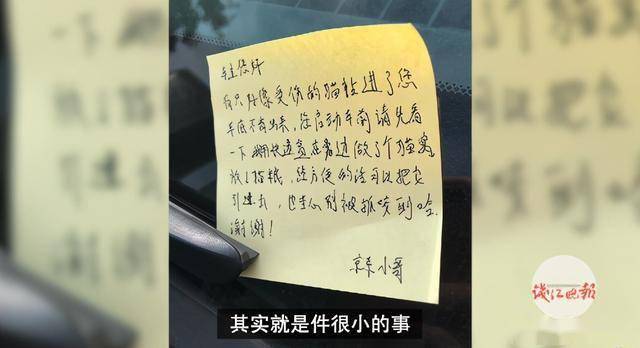 车主您好
有只好像受伤的猫钻进了您
车底不肯出来，您启动车前请先看
一下 拿快递盒在旁边做了个猫窝
放了猫粮，您方便的话可以把它
引进去，也当心别被抓咬到哈
谢谢！
京东小哥
钱江晚报
其实就是件很小的事